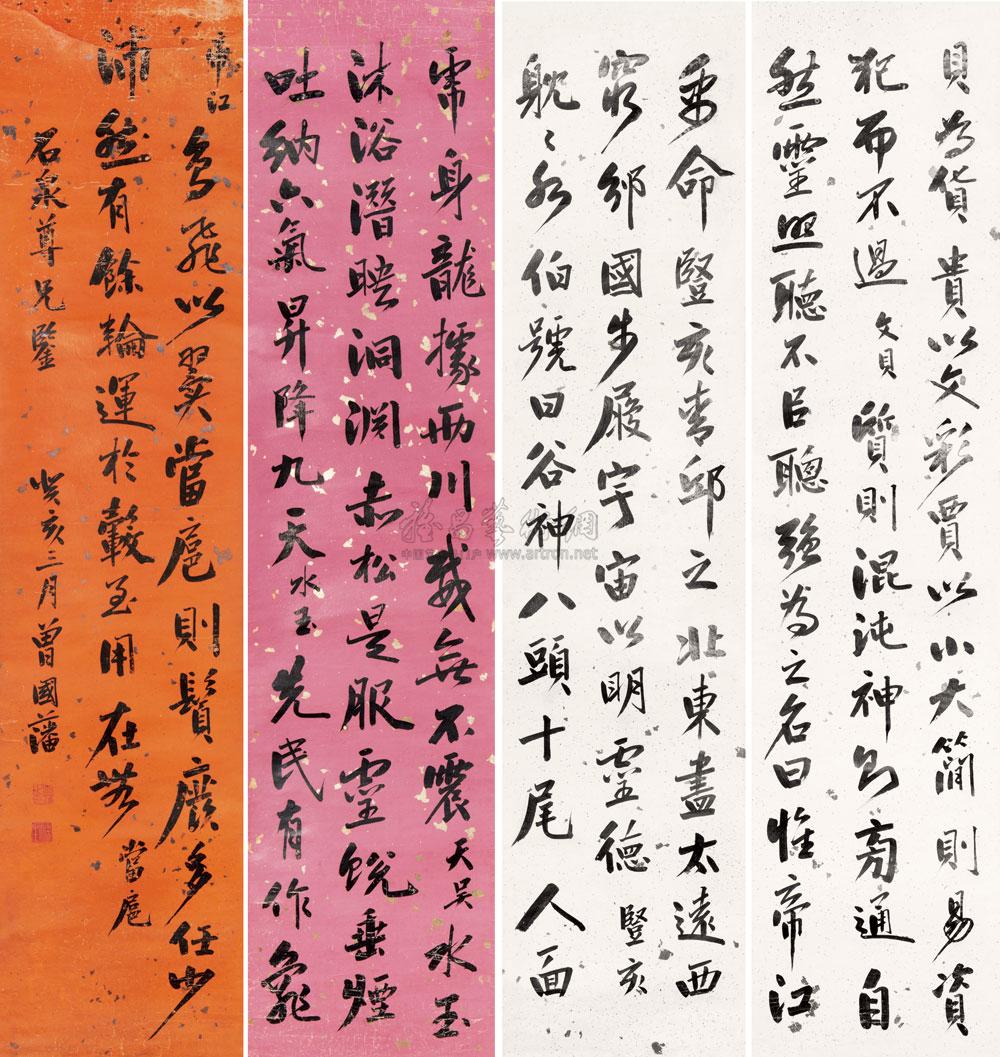 貝為貨貴以文彩賈以小大簡則易資
犯而不過 文貝 質則混沌神則旁通自
然靈照聽不以聰強為之名曰惟帝江
禹命豎亥青邱之北東盡太遠西
窮邠國步履宇宙以明靈德 豎亥
躭々水伯號曰谷神八頭十尾人面
虎身龍據兩川威無不震 天吳 水玉
沐浴潛映洞淵赤松是服靈蛻乘煙
吐納六氣昇降九天 水玉 先民有作龜
帝江 鳥飛以翼當扈則鬚廢多任少
沛然有餘輪運於轂至用在無 當扈
石泉尊兄鑒 癸亥三月曾國藩
雅昌藝術網
www.artron.net